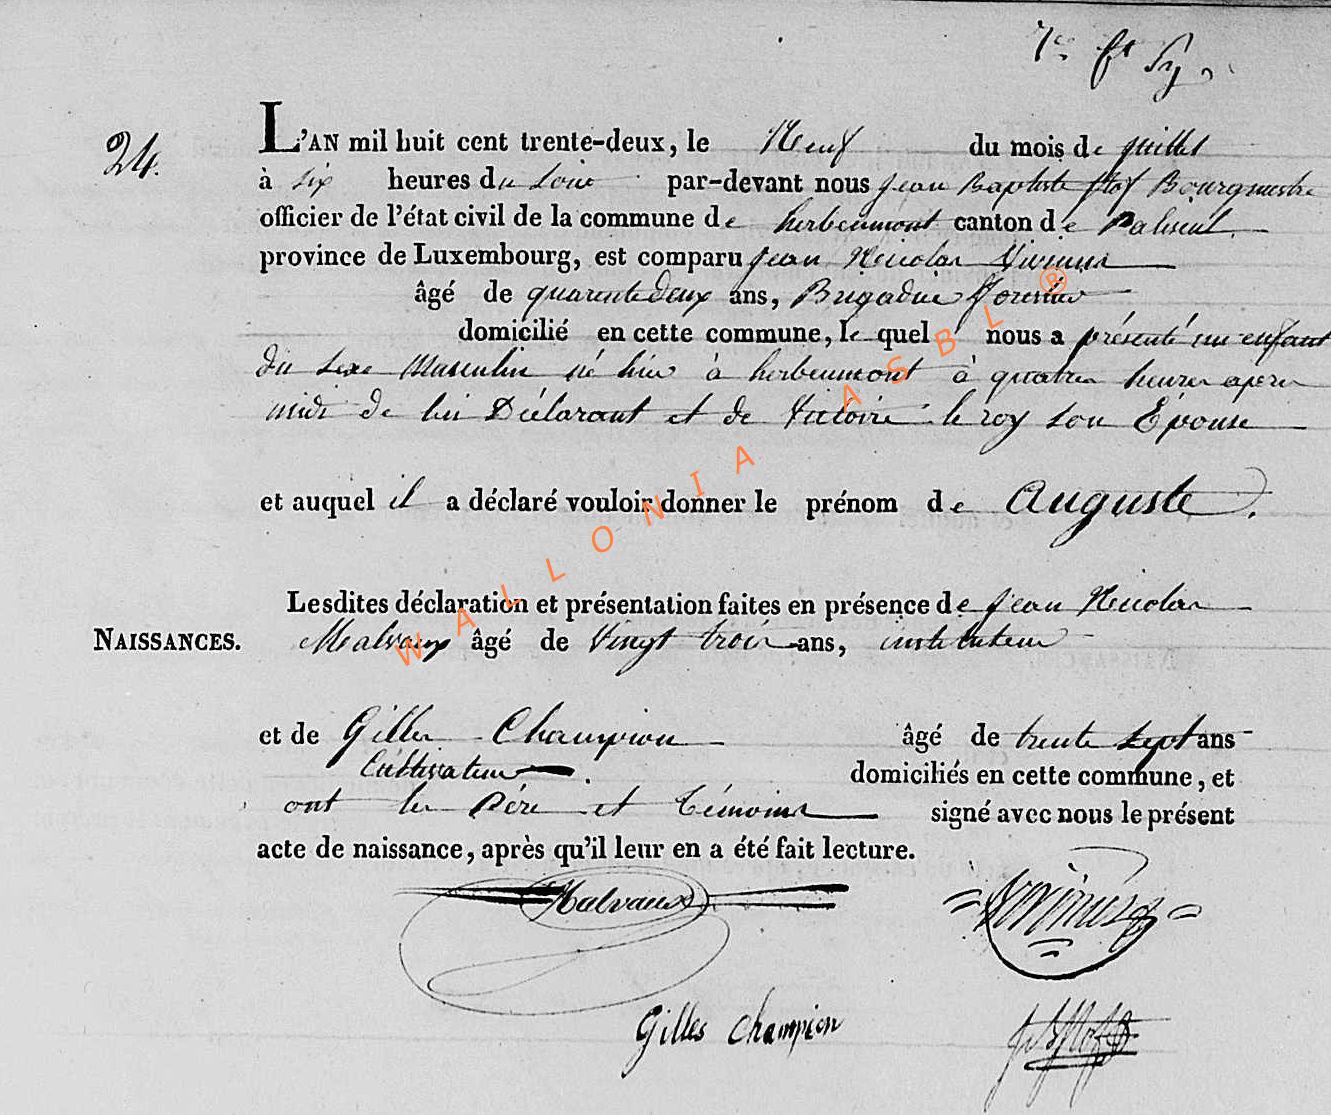 24.
L'AN mil huit cent trente-deux, le Neuf du mois de juillet
à six heures du soir par-devant nous jean Baptiste Bourgmestre
officier de l'état civil de la commune de herbeumont canton de Paliseul
province de Luxembourg, est comparu jean Nicolas
âgé de quarente deux ans, Brigadier forestier
domicilié en cette commune, le quel nous a présenté un enfant
du sexe Masculin né hier à herbeumont à quatre heures apres
midi de lui Déclarant et de Victoire le roy son Épouse
et auquel il a déclaré vouloir donner le prénom de Auguste.
Lesdites déclaration et présentation faites en présence de jean Nicolas
NAISSANCES. Malvaux âgé de Vingt trois ans, instituteur
et de Gilles Champion âgé de trente sept ans
Cultivateur. domiciliés en cette commune, et
ont les Pére et témoins signé avec nous le présent
acte de naissance, après qu'il leur en a été fait lecture.
Malvaux
Gilles Champion
WALLONIA ASBL ®